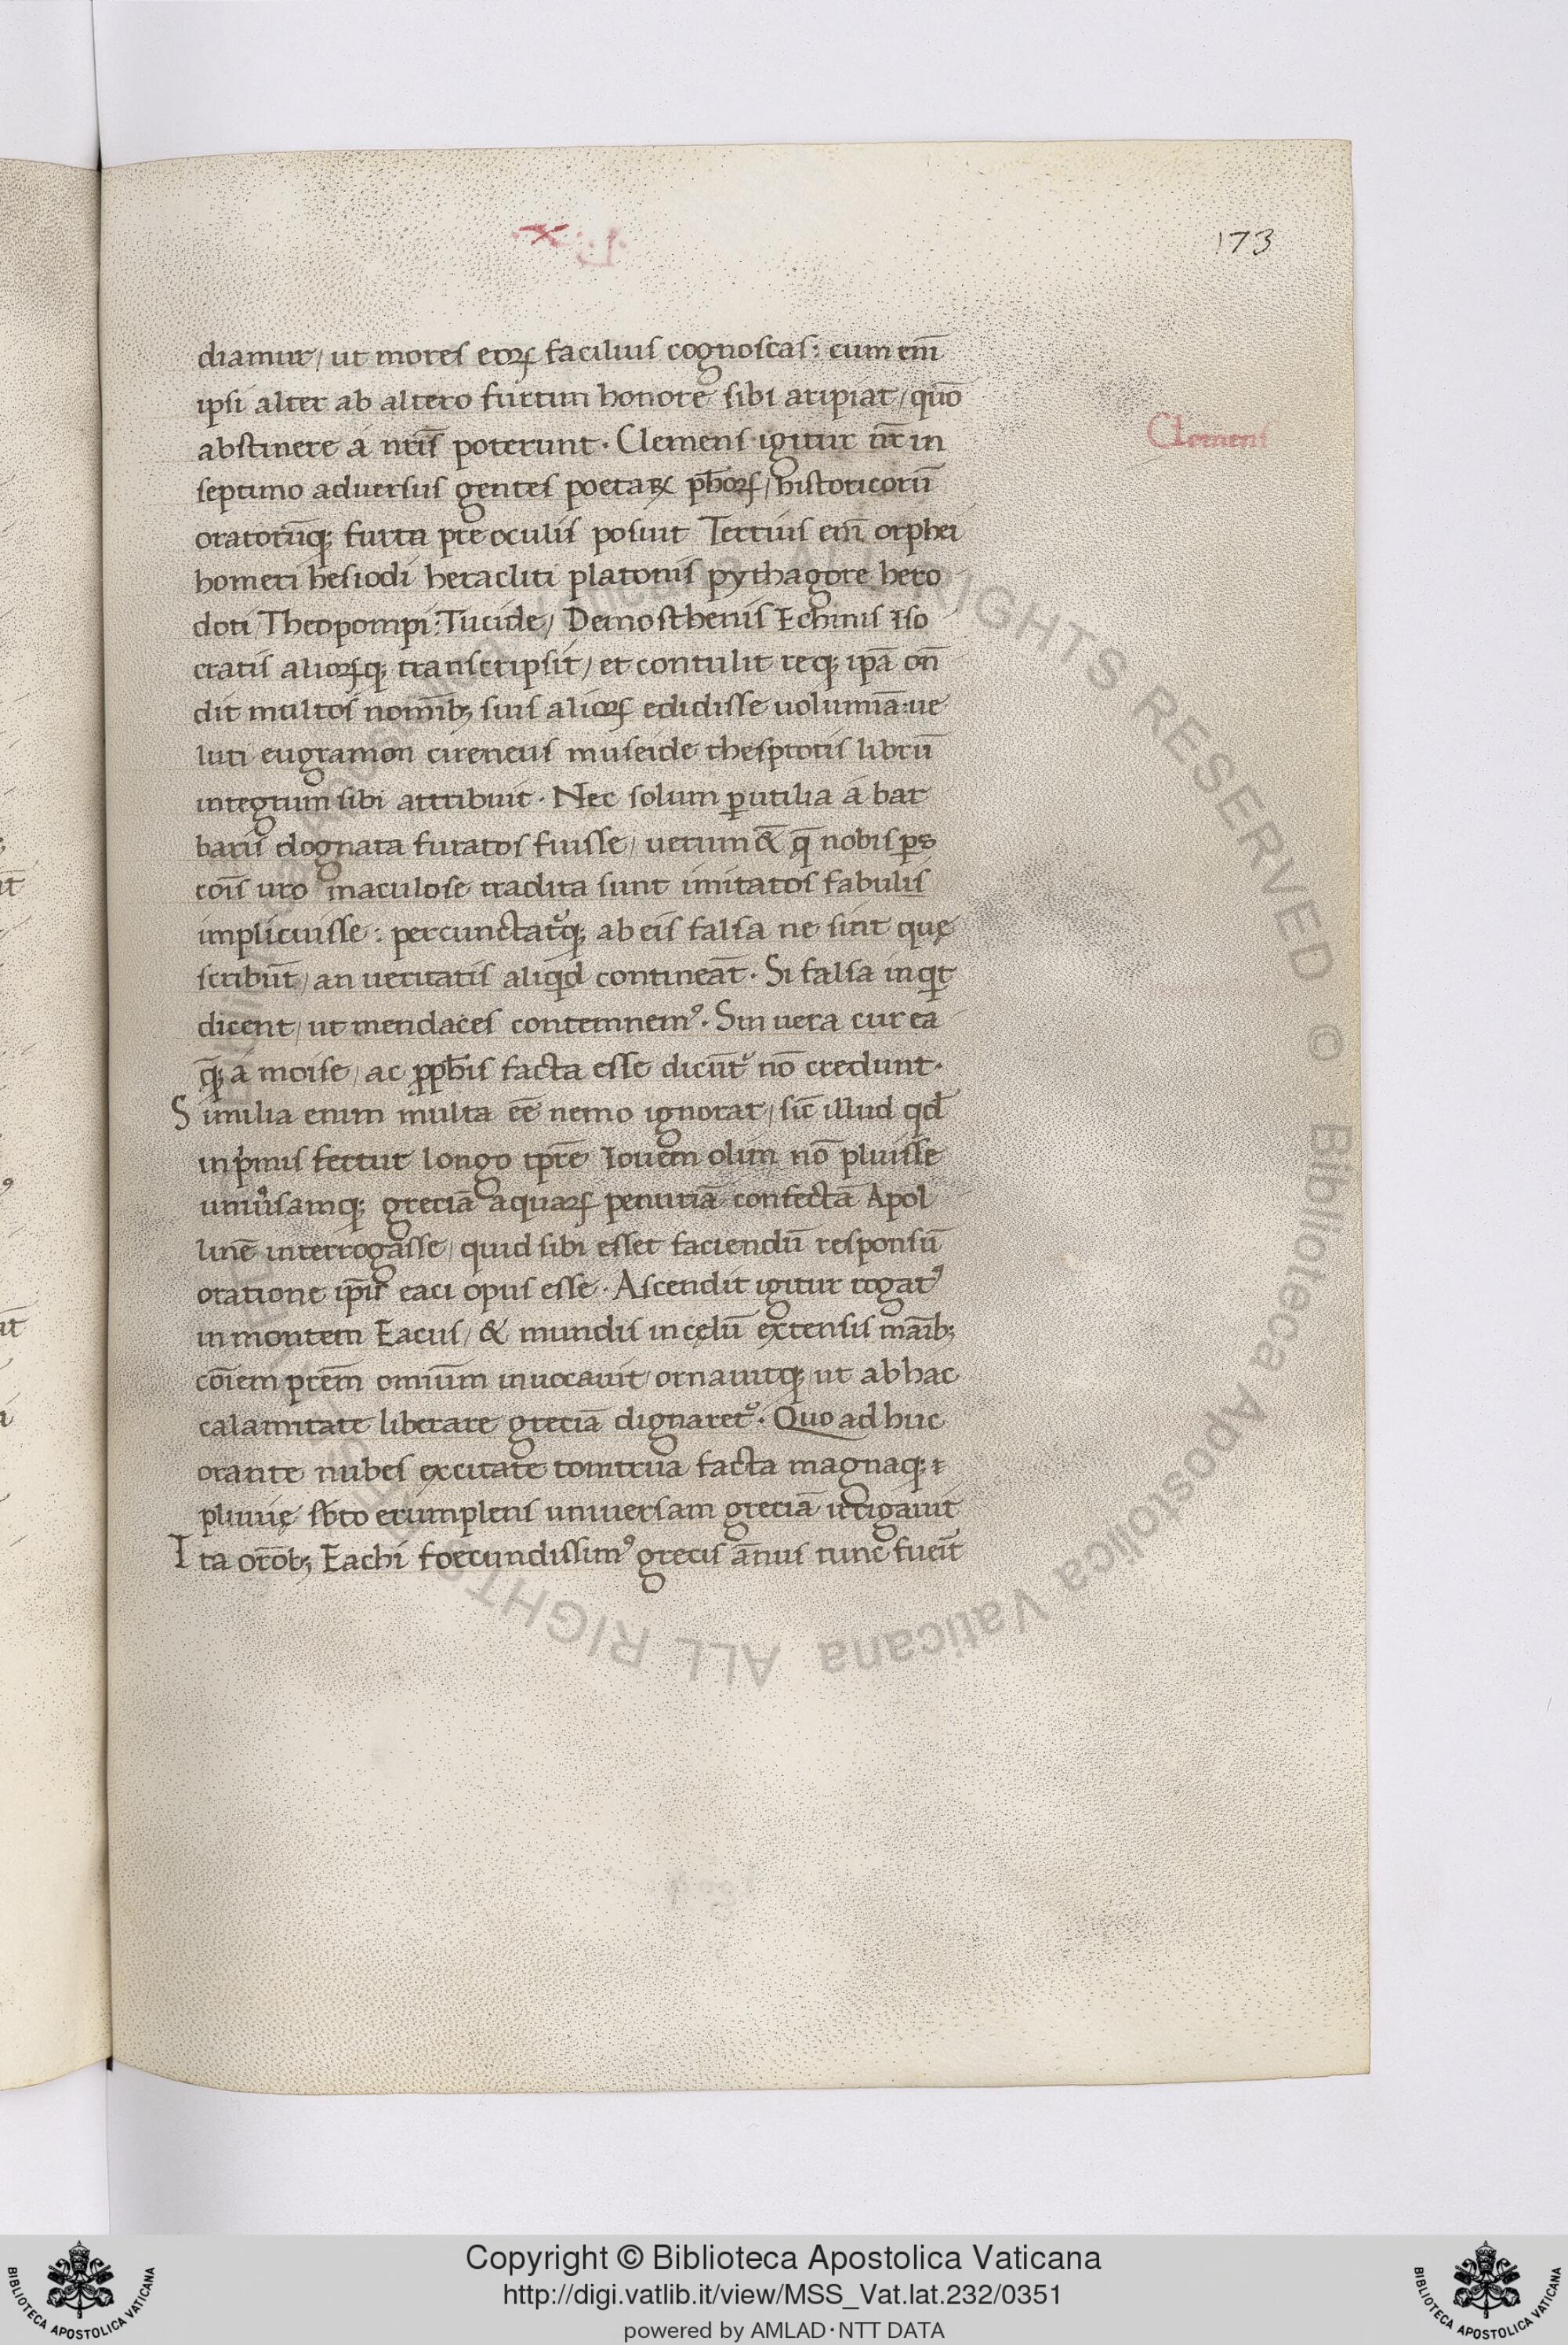 .x.
173
diamur/ ut mores eoꝝ facilius cognoscas: cum em̄
ipsi alter ab altero furtim honorē sibi aripiat/ quō
abstinere á nr̄is poterunt. Clemens igitur nr̄ in
Clemens
septimo aduersus gentes poetaꝝ ph̄oꝝ/ historicorū
oratorūq; furta pre oculis posuit Tertius em̄ orphei
homeri hesiodi heracliti platonis pythagore hero
doti/ Theopompi: Tucide/ Demosthenis Echinis Iso
cratis alioꝝq; transcripsit/ et contulit req; ipā on̄
dit multos nomīb; suis alioꝝ edidisse uolumīa: ue
luti eugramon cireneus museide thesprotis librū
integrum sibi attribuit. Nec solum ꝑutilia á bar
baris dogmata furatos fuisse/ uerum & q̄ nobis
cōis uro maculose tradita sunt imitatos fabulis
implicuisse: percunctat᷒q; ab eis falsa ne sint quę
scribūt/ an ueritatis aliqd contineāt. Si falsa inqt
dicent/ ut mendaces contemnemꝰ. Sin uera cur ea
q̄; a moise/ ac ꝓph̄is facta esse dicūt᷒ nō credunt.
Similia enim multa eē nemo ignorat/ sic̄ illud qd̄
in pͥmis fertur longo tp̄re Iouem olim nō pluisse
uniuͥsamq; greciā aquaꝝ penuriā confectā Apol
linē interrogasse/ quid sibi esset faciendū responsū
oratione ip̄iꝰ eaci opus esse. Ascendit igitur rogatꝰ
in montem Eacus/ & mundis in cęlū extensis māib;
cōiem prēm omiūm inuocauit/ ornauitq; ut ab hac
calamitate liberare greciā dignaret᷒. Quo ad huc
orante nubes excitate tonitrua facta magnaq; ⁊
pluuię sb̄to erumplens uniuersam greciā irrigauit
Ita or̄ōib; Eachi foecundissimꝰ grecis ānus tunc fueīt
Copyright © Biblioteca Apostolica Vaticana
http://digi.vatlib.it/view/MSS_Vat.lat.232/0351
powered by AMLAD·NTT DATA
BIBLIOTECA APOSTOLICA VATICANA
BIBLIOTECA APOSTOLICA VATICANA
Biblioteca Apostolica Vaticana ALL RIGHTS RESERVED © Biblioteca Apostolica Vaticana ALL RIGHTS